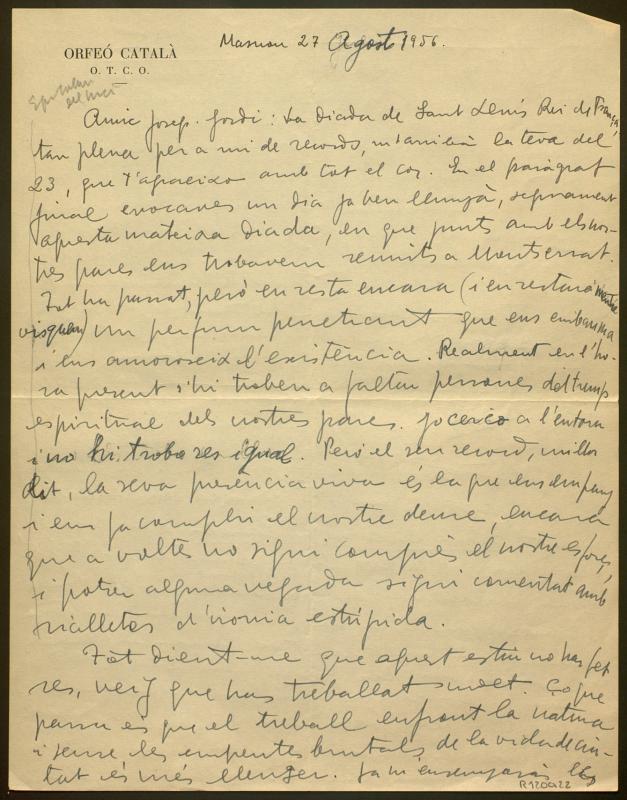 ORFEÓ CATALÀ
O. T. C. O.
Masnou 27 Agost 1956.
Epistolari
Amic Josep-Jordi: La diada de Sant Lluís Rei de França,
tan plena per a mi de records, m'arribà la teva del
23, que t'agraeixo amb tot el cor. En el paràgraf
final evocaves un dia ja ben llunyà, segurament
aquesta mateixa diada, en que junts amb els nos-
tres pares ens trobavem reunits a Montserrat.
Tot ha passat, però en resta encara (i en restarà mentre
visquem) un perfum penetrant que ens embauma
i ens amoroseix l'existència. Realment en l'ho-
ra present s'hi troben a faltar persones del tremp
espiritual dels nostres pares. Jo cerco a l'entorn
i no hi trobo res igual. Però el seu record, millor
dit, la seva presència viva és la que ens empeny
i ens fa complir el nostre deure, encara
que a voltes no sigui comprès el nostre esforç,
i potser alguna vegada sigui comentat amb
rialletes d'ironia estúpida.
Tot dient-me que aquest estiu no has fet
res, veig que has treballat molt. Ço que
passa és que el treball enfront la natura
i sense les empentes brutals de la vida de ciu-
tat és més lleuger. Ja m'ensenyaràs
R120022